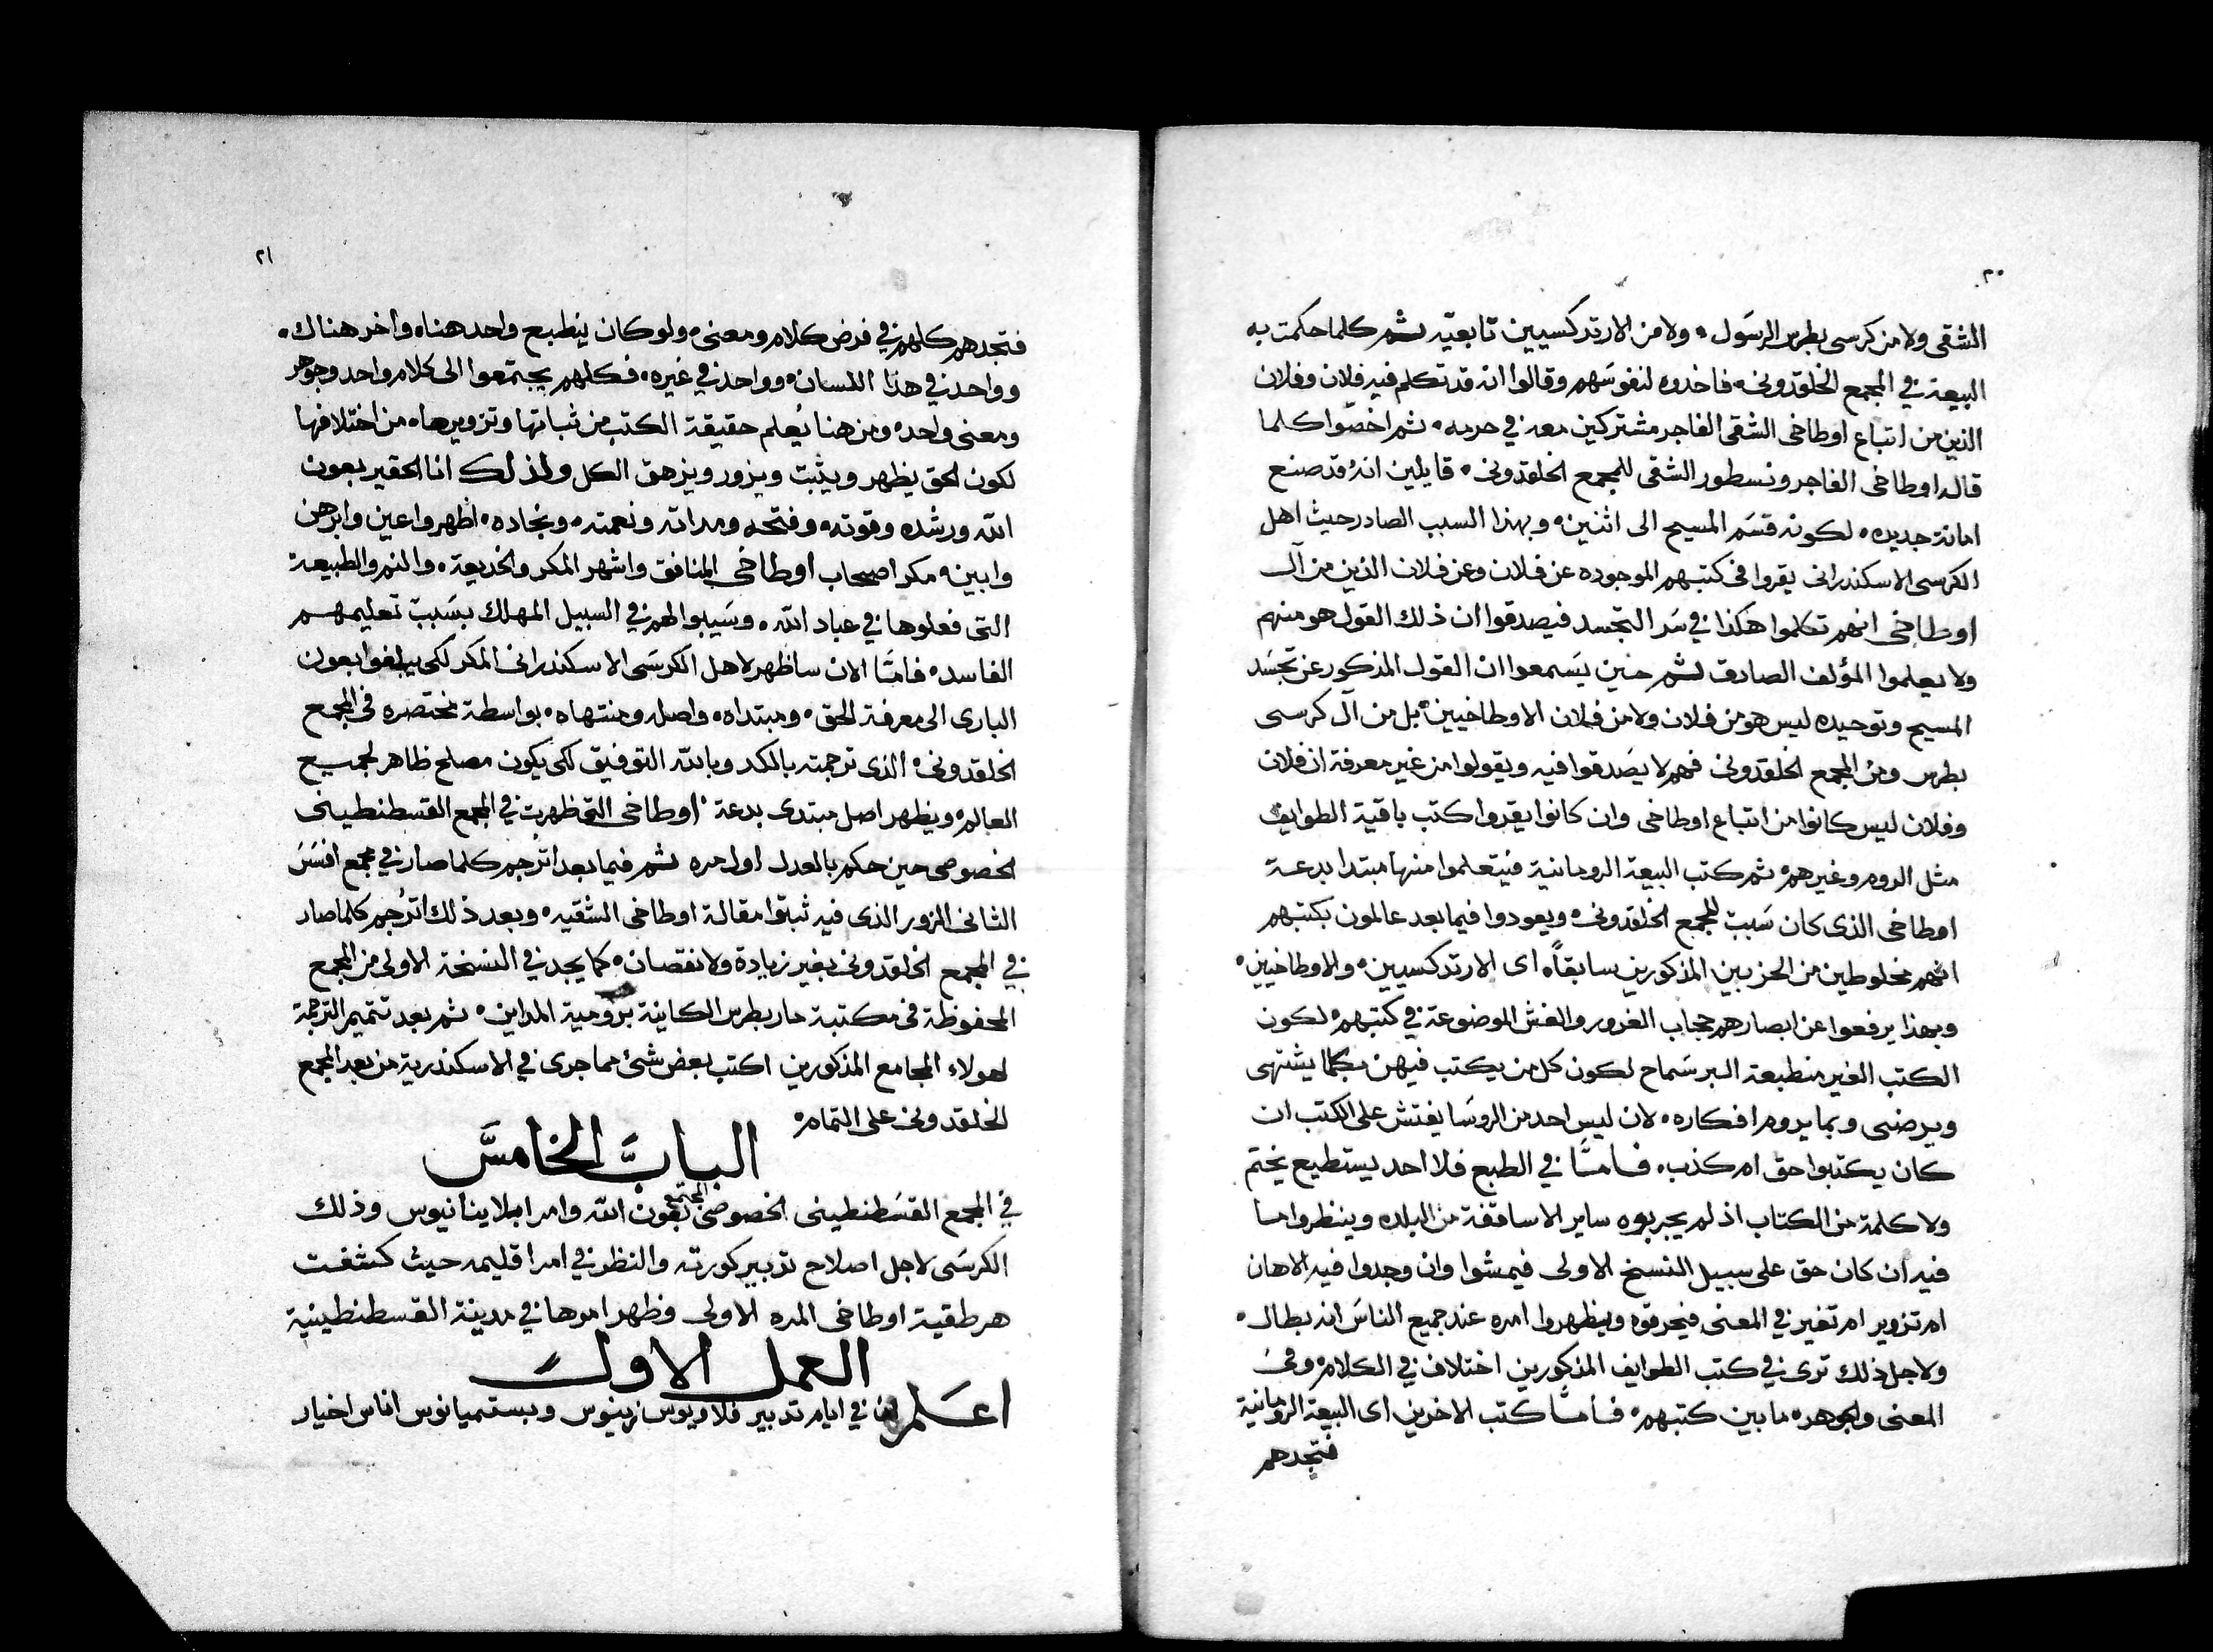 ٢٠
الشقى ولا من كرسى بطرس الرسول، ولا من الارتدكسيين تابعيّه ثم كلما حكمت به
البيعة في المجمع الخلقدونى، فاخدوه لنفوسهم وقالوا انه قد تكلم فيه فلان وفلان
الذين من اتباع اوطاخى الشقى الفاجر مشتركين معه في حرمه، ثم اخصّوا كلما
قاله اوطاخى الفاجر ونسطور الشقى للمجمع الخلقدونى، قايلين انهُ قد صنع
امانة جديده، لكونه قسَم المسيح الى اثنين، وبهذا السبب الصادر حيث اهل
الكرسى الاسكندرانى يقروا فى كتبهم الموجوده عن فلان وعن فلان الذين من آل
اوطاخى انهم تكلموا هكذا في سَر التجسد فيصدقوا ان ذلك القول هو منهم
ولا يعلموا المؤلف الصادق ثم حنين يَسمعوا ان القول المذكور عن تجسَد
المسيح وتوحيده ليس هو من فلان ولا من فلان الاوطاخيين، بل من آل كرسى
بطرس ومن المجمع الخلقدونى فهم لا يصَدقوا فيه ويقولوا من غير معرفة ان فلان
وفلان ليس كانوا من اتباع اوطاخى وان كانوا يقروا كتب باقية الطوايف
مثل الروم وغيرهم، ثم كتب البيعة الرومانية فيتعلموا منها مبتدا بدعة
اوطاخى الذى كان سَبب للمجمع الخلقدونى، ويعودوا فيما بعد عالمون بكتبهم
انهم مخلوطين من الحزبين المذكورين سابقاً، اى الارتدكسيين، والاوطاخيين،
وبهذا يرفعوا عن ابصارهم حجاب الغرور والغش الموضوعة في كتبهم، لكون
الكتب الغير منطبعة السر سَماح لكون كل من يكتب فيهن بكلما يشتهى
ويرضى وبما يروم افكاره، لان ليس احد من الروسَا يفتش على الكتب ان
كان يكتبوا حق ام كذب، فامَّا في الطبع فلا احد يستطيع يختم
ولا كلمة من الكتاب اذ لم يجربوه ساير الاساقفة من البلده وينظروا ما
فيه ان كان حق على سبيل النسخ الاولى فيمشوا وان وجدوا فيه الاهان
ام تزوير ام تغير في المعنى فيحرقوه ويظهروا امره عند جميع الناسَ انه بطال،
ولاجل ذلك ترى في كتب الطوايف المذكورين اختلاف في الكلام، وفى
المعنى والجوهر، ما بين كتبهم، فأمَّا كتب الاخرين اى البيعة الرومانية
فتجدهم
٢١
فتجدهم كلهم في فرض كلام ومعنى، ولو كان ينطبع واحد هناه واخر هناك،
وواحد في هذا اللسان، وواحد في غيره، فكلهم يجتمعوا الى كلام واحد وجوهر
ومعنى واحد، ومن هنا يُعلم حقيقة الكتب من ثباتها وتزويرها، من اختلافها
لكون الحق يظهر ويثبت ويزور ويزهق الكل ولذلك انا الحقير بعون
الله ورشده وقوته، وفتحه ومداته ونعمته، ونجاده، اظهر واعين وابرهن
وابين، مكر اصحاب اوطاخى المنافق واشهر المكر والخديعة، والنم والطبيعة
التى فعلوها في عباد الله، وسَيبوا لهم في السبيل المهلك بسَبب تعليمهم
الفاسد، فامَّا الان ساظهر لاهل الكرسَى الاسكندرانى المكر لكى يبلغوا بعون
البارى الى معرفة الحق، ومبتداه، واصله ومنتهاه، بواسطة مختصره في المجمع
الخلقدونى، الذى ترجمته بالكد وبالله التوفيق لكى يكون مصلح ظاهر لجميع
العالم، ويظهر اصل مبتدى بدعة اوطاخى التى ظهرت في المجمع القسطنطينى
الخصوصى حين حكم بالعدل اول مره ثم فيما بعد اترجم كلما صار في مجمع افسَسَ
الثانى المزور الذى فيه ثبتوا مقالة اوطاخى الشقيه، وبعد ذلك اترُجم كلما صار
في المجمع الخلقدونى بغير زيادة ولا نقصان، كما يجد في النسخة الاولى من المجمع
المحفوظة فى مكتبة مار بطرس الكاينة برومية المداين، ثم بعد تتميم الترجمة
لهولاء المجامع المذكورين اكتب بعض شئ مما جرى في الاسكندرية من بعد المجمع
الخلقدونى على التمام،
البابَ الخامسَ
في المجمع القسَطنطينى الخصوصى المجتمع بعون الله وامر ابلا بنانيوس وذلك
الكرسَى لاجل اصلاح تدبير كورته والنظر في امر اقليمه حيث كشفت
هرطقية اوطاخى المره الاولى وظهر اموها في مدينة القسطنطينية
العمل الاول
اعَلم ان في ايام تدبير فلاويوس زينوس وبستميانوس اناس اخيار